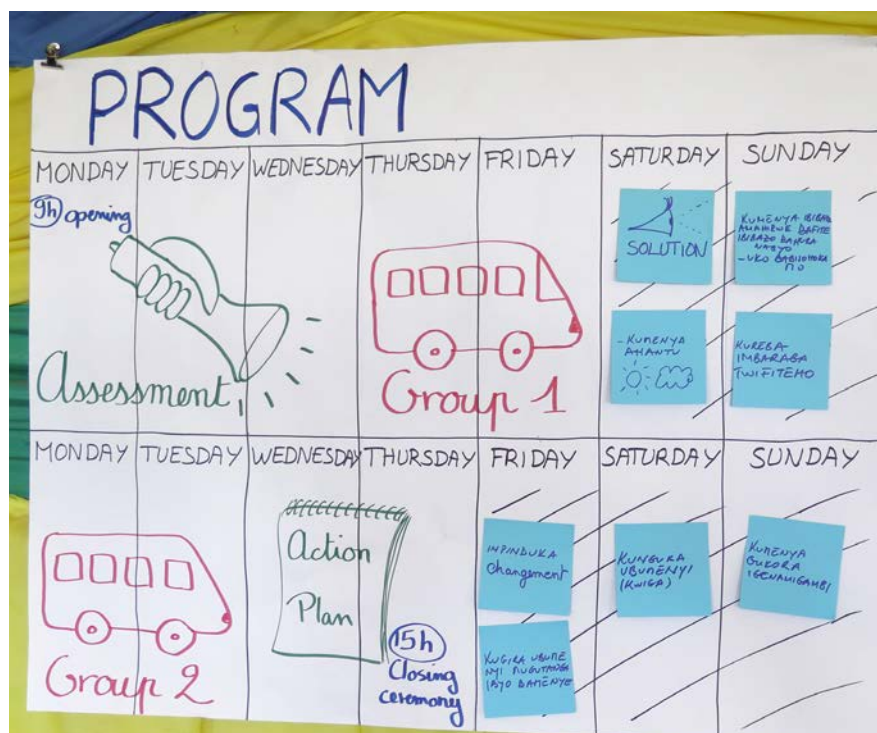 PROGRAM
MONDAY TUESDAY WEDNESDAY THURSDAY FRIDAY SATURDAY SUNDAY
9h opening
Assessment
Group 1
SOLUTION
- KUMENYA
AHANTU
KUMENYA IBIBAZO
BAFITE
IBIBAZO BAHURA
NABYO
- UKO
KUREBA
IMBARAGA
TWIFITEMO
MONDAY TUESDAY WEDNESDAY THURSDAY FRIDAY SATURDAY SUNDAY
Group 2
Action
Plan
15h
Closing
ceremony
IMPINDUKA
Changement
KUGIRA UBUME
NYI MUGUTANGA
IBYO BAMENYE
KUNGUKA
UBUMENYI
(KWIGA)
KUMENYA
GUKORA
IGENAMIGAMBI